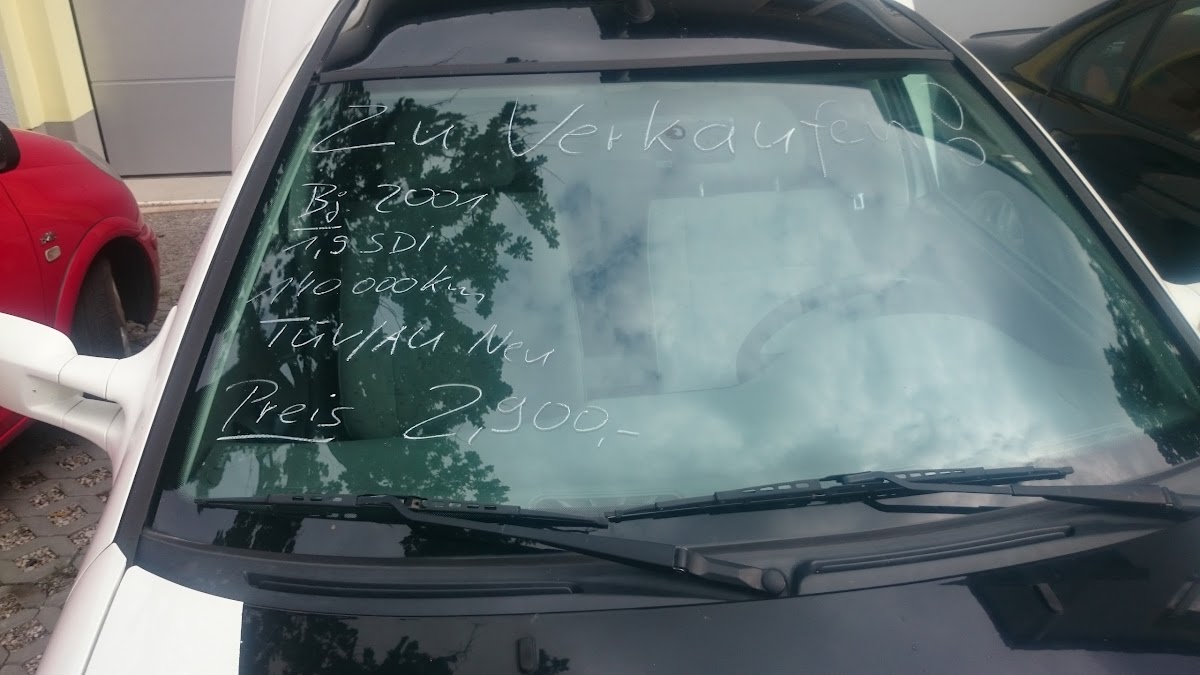 Zu Verkaufen!
Bj 2001
1,9 SDi
140 000 km
TÜV/AU Neu
Preis 2,900,-